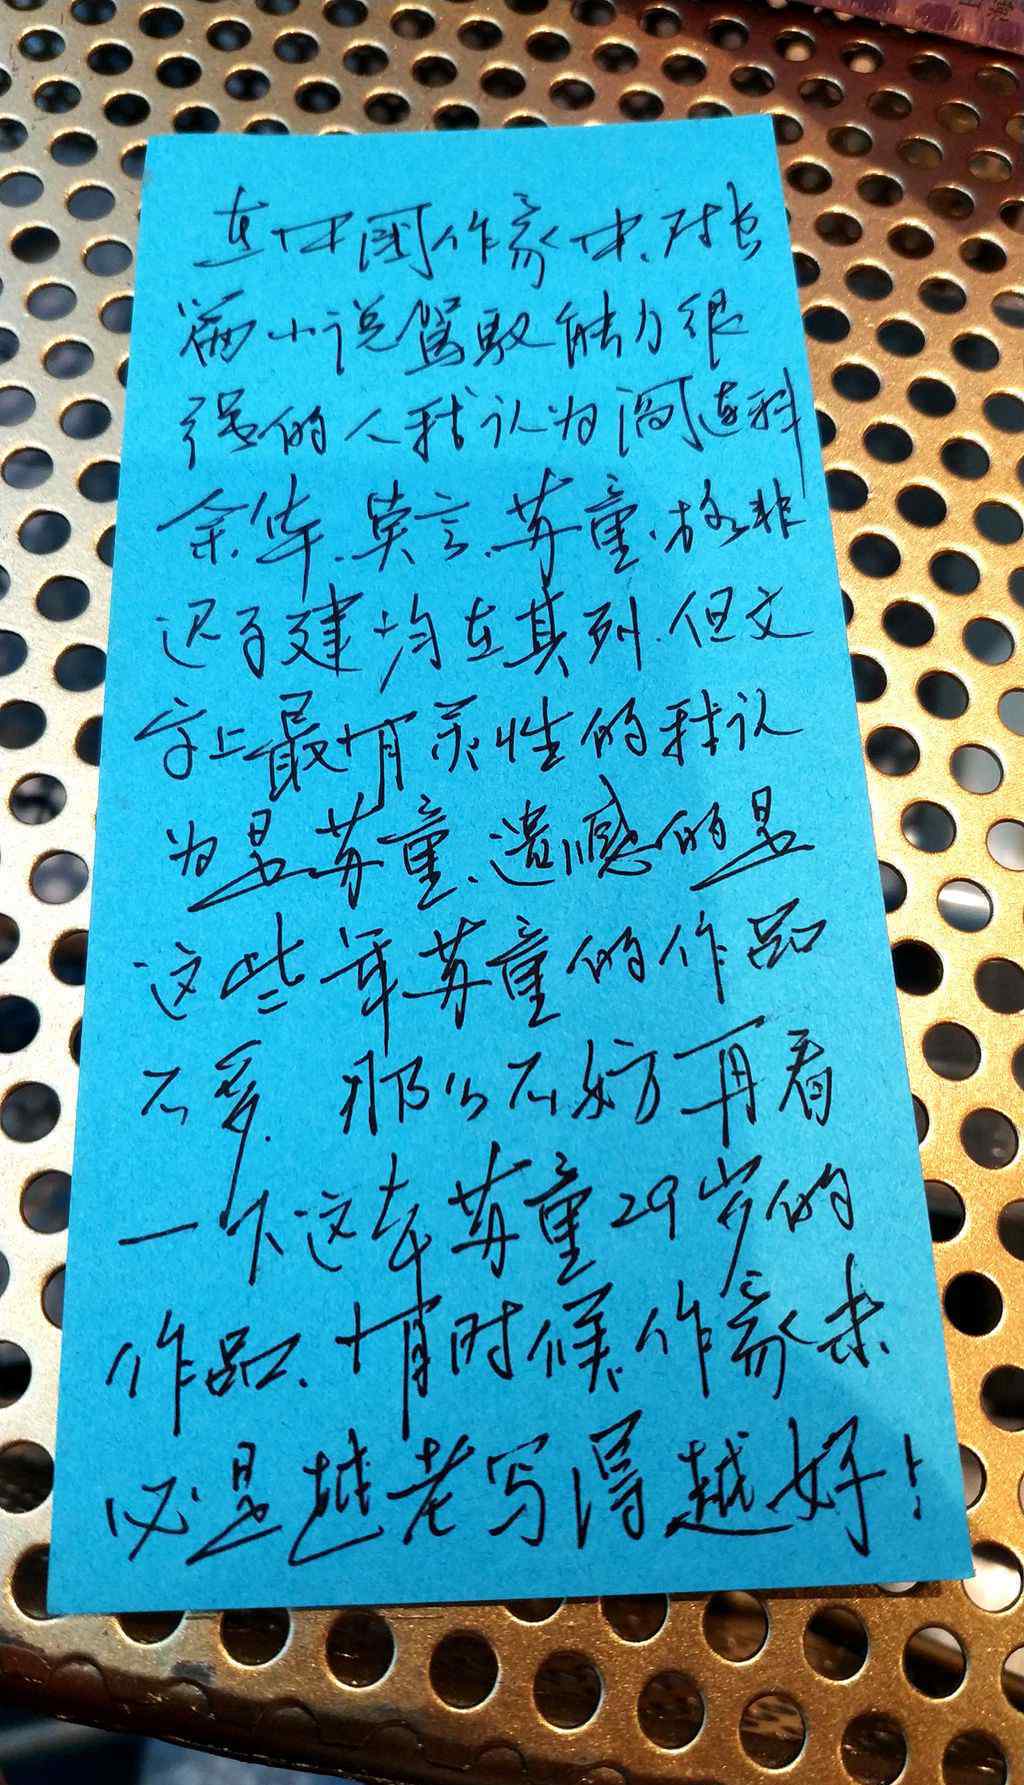 在中国作家中、对长
篇小说驾驭能力很
强的人我认为阎连科
余华、莫言、苏童、格非
迟子建均在其列、但文
字上最有灵性的我认
为是苏童、遗憾的是
这些年苏童的作品
不多、那么不妨再看
一下这本苏童29岁的
作品、有时候、作家未
必是越老写得越好！